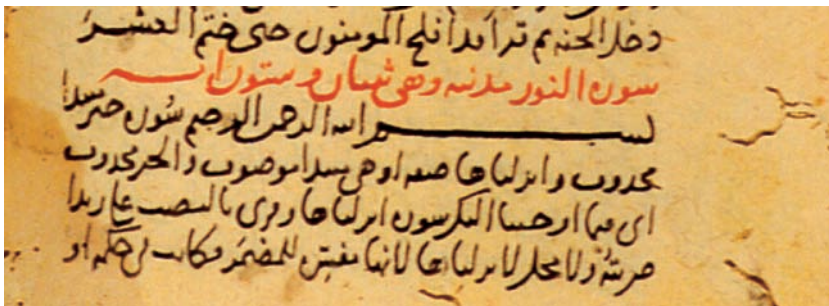 دخل الجنة ثم قرأ قد أفلح المومنون حتى ختم العشر
سورة النور مدنية وهي ثنتان وستون آية
بسم الله الرحمن الرحيم سورة خبر مبتدا
محذوف وانزلناها صفة او هي مبتدا موصوف والخبر محذوف
اي فيما اوحينا اليك سورة انزلناها وقرى بالنصب على زيدا
ضربته ولا محل لانزلناها لانها مفسرة للمضمر فكانت في حكمه او